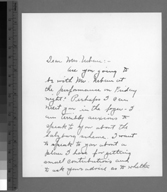 Dear Mrs.
Are you going to
be with Mr.
at
the performance on Friday
night? Perhaps I can
meet you in the foyer - I
am terribly anxious to
speak to you about the
Salzburg scheme. I want
to speak to you about a
plan I have for getting
small contributions and
to ask your advice as to whether